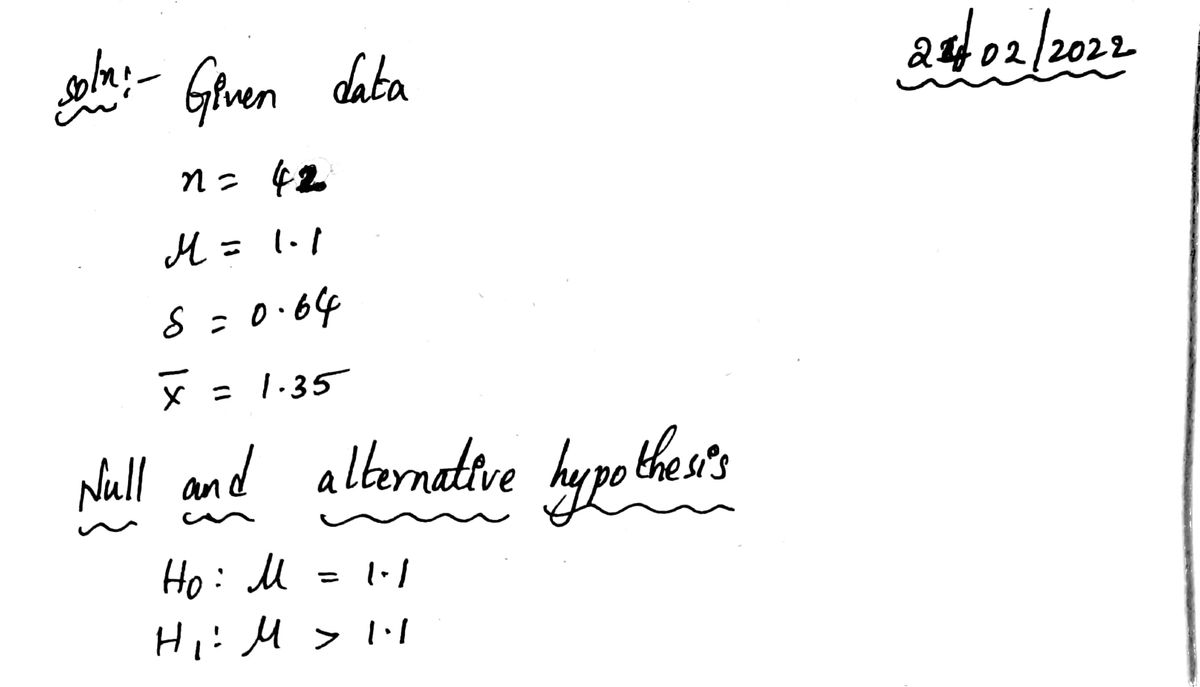 soln:- Given data
02/2022
n = 42
μ = 1.1
s = 0.64
x̄ = 1.35
Null and alternative hypothesis
H₀: μ = 1.1
H₁: μ > 1.1